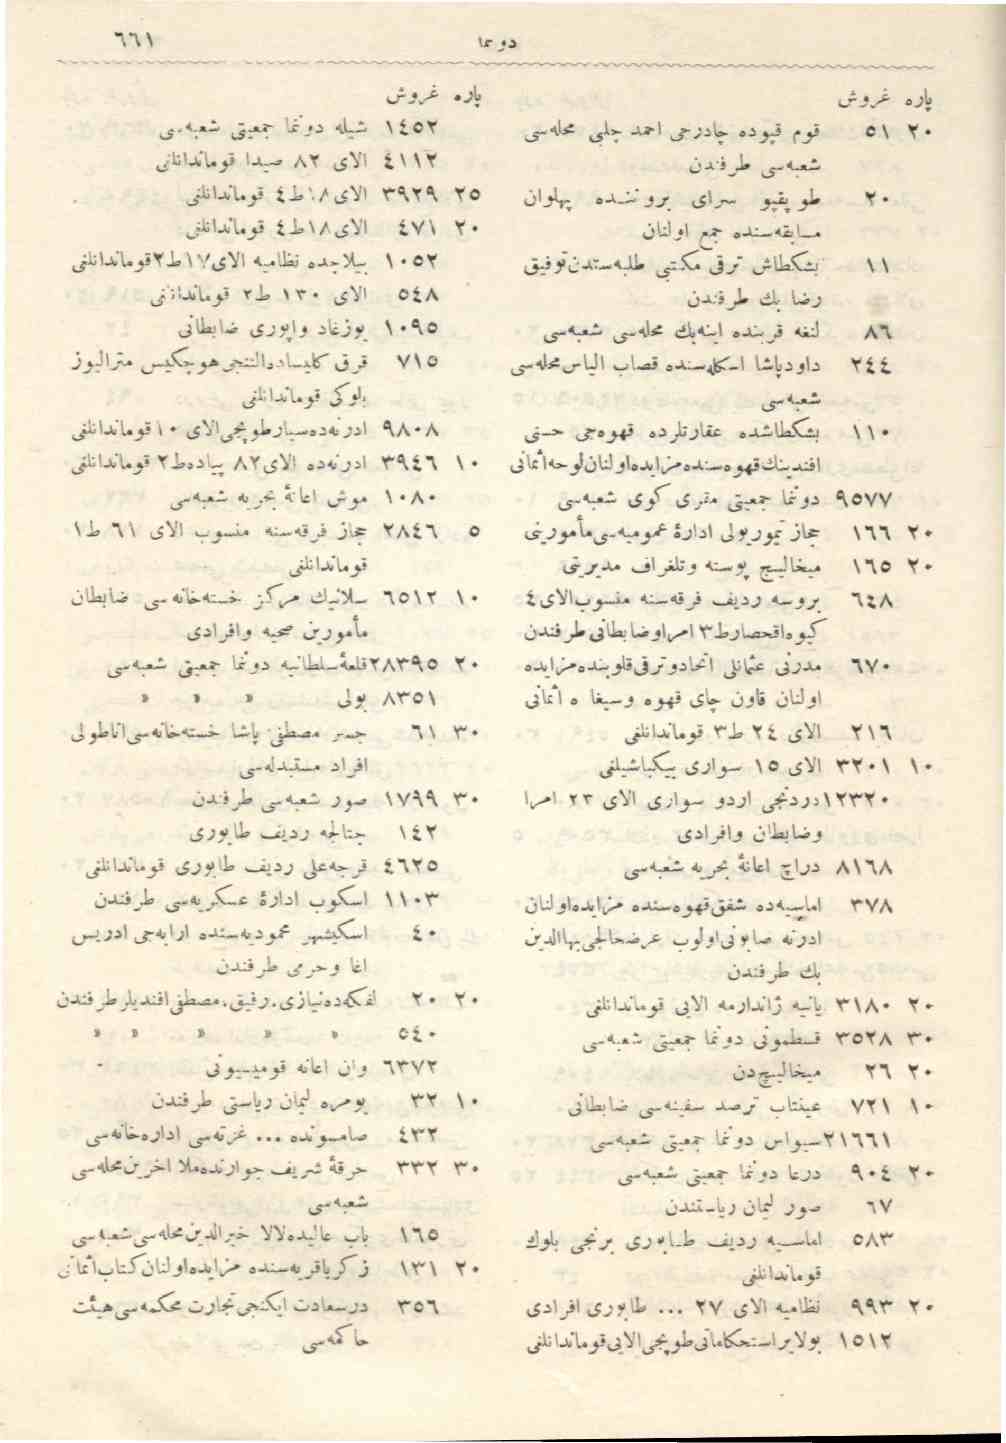 دوننما
٦٦١
پاره غروش
٢٠ ٥١ قوم قپوده چادرجی احمد چلبی محله‌سی
شعبه‌سی طرفندن
٢٠ طوپقپو سرای بروننده پهلوان
مسابقه‌سنده جمع اولنان
١١ بشکطاش ترقی مکتبی طلبه‌سندن توفیق
رضا بك طرفندن
٨٦ لنغه قربنده اینه‌بك محله‌سی شعبه‌سی
٢٤٤ داودپاشا اسکله‌سنده قصاب الیاس محله‌سی
شعبه‌سی
١١٠ بشکطاشده عقارتلرده قهوه‌جی حسنی
افندینك قهوه‌سنده مزایده اولنان لوحه اثمانی
٩٥٧٧ دوننما جمعیتی مقری کوی شعبه‌سی
٢٠ ١٦٦ حجاز تیموریولی ادارهٔ عمومیه‌سی مأمورینی
٢٠ ١٦٥ میخالیچ پوسته وتلغراف مدیریتی
٦٤٨ بروسه ردیف فرقه‌سنه منسوب الای ٤
کیوه اقحصار ط ٣ امرا وضابطانی طرفندن
٦٧٠ مدرنی عثمانلی اتحاد و ترقی قلوبنده مزایده
اولنان قاون چای قهوه وسیغاره اثمانی
٢١٦ الای ٢٤ ط ٣ قوماندانلغی
١٠ ٣٢٠١ الای ١٥ سواری بیکباشیلغی
١٢٣٢٠ دردنجی اردو سواری الای ٢٣ امرا
وضابطان وافرادی
٨١٦٨ دراچ اعانهٔ بحریه شعبه‌سی
٣٧٨ اماسیه‌ده شفق قهوه‌سنده مزایده اولنان
ادرنه صابونی اولوب عرضحالجی بهاالدین
بك طرفندن
٢٠ ٣١٨٠ یانیه ژاندارمه الایی قوماندانلغی
٣٠ ٣٥٢٨ قسطمونی دوننما جمعیتی شعبه‌سی
٢٠ ٢٦ میخالیچ‌دن
١٠ ٧٢١ عینتاب ترصد سفینه‌سی ضابطانی
٢١٦٦١ سیواس دوننما جمعیتی شعبه‌سی
٢٠ ٩٠٤ درعا دوننما جمعیتی شعبه‌سی
٦٧ صور لیمان ریاستندن
٥٨٣ اماسیه ردیف طابوری برنجی بلوك
قوماندانلغی
٢٠ ٩٩٣ نظامیه الای ٢٧ ... طابوری افرادی
١٥١٢ بولایر استحکاماتی طوپجی الایی قوماندانلغی
پاره غروش
١٤٥٢ شیله دوننما جمعیتی شعبه‌سی
٤١١٢ الای ٨٢ صیدا قوماندانلغی
٢٥ ٣٩٢٩ الای ١٨ ط ٤ قوماندانلغی
٢٠ ٤٧١ الای ١٨ ط ٤ قوماندانلغی
١٠٥٢ بیلاجده نظامیه الای ١٧ ط ٢ قوماندانلغی
٥٤٨ الای ١٣٠ ط ٢ قوماندانلغی
١٠٩٥ یوزغاد واپوری ضابطانی
٧١٥ قرق کلیساده النجی هوچکیس مترالیوز
بلوکی قوماندانلغی
٩٨٠٨ ادرنه‌ده سیار طوپجی الای ١٠ قوماندانلغی
١٠ ٣٩٤٦ ادرنه‌ده الای ٨٢ پیاده ط ٢ قوماندانلغی
١٠٨٠ موش اعانهٔ بحریه شعبه‌سی
٥ ٢٨٤٦ حجاز فرقه‌سنه منسوب الای ٦١ ط ١
قوماندانلغی
١٠ ٦٥١٢ سلانیك مرکز خسته‌خانه‌سی ضابطان
مأمورین صحیه وافرادی
٢٠ ٢٨٣٩٥ قلعهٔ سلطانیه دوننما جمعیتی شعبه‌سی
٨٣٥١ بولی » » »
٣٠ ٦١ جسر مصطفی پاشا خسته‌خانه‌سی اناطولی
افراد مستبدله‌سی
٣٠ ١٧٩٩ صور شعبه‌سی طرفندن
١٤٢ چتالجه ردیف طابوری
٤٦٢٥ قرجه‌علی ردیف طابوری قوماندانلغی
١١٠٣ اسکوب ادارهٔ عسکریه‌سی طرفندن
٤٠ اسکیشهر محمودیه‌سنده ارابه‌جی ادریس
اغا وحرمی طرفندن
٢٠ ٢٠ لفکه‌ده نیازی، رفیق، مصطفی افندیلر طرفندن
٥٤٠ » » » » »
٦٣٧٢ وان اعانه قومیسیونی
١٠ ٣٢ یومره لیمان ریاستی طرفندن
٤٣٢ صامسونده ... غزته‌سی اداره‌خانه‌سی
٣٠ ٣٣٢ خرقهٔ شریف جوارنده ملا اخرین محله‌سی
شعبه‌سی
١٦٥ باب عالیده لالا خیرالدین محله‌سی شعبه‌سی
٢٠ ١٣١ زکریا قریه‌سنده مزایده اولنان کتاب اثمانی
٣٥٦ درسعادت ایکنجی تجارت محکمه‌سی هیئت
حاکمه‌سی